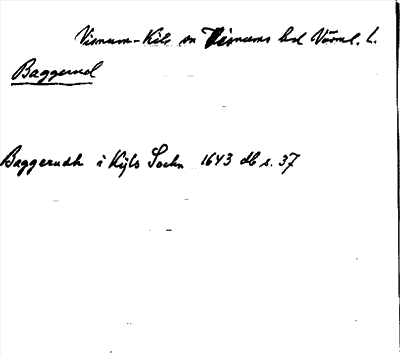 Visnum-Kil sn Visnums hd Värml. l.
Baggerud
Baggerudh i Kijls Sochn 1643 db s. 37